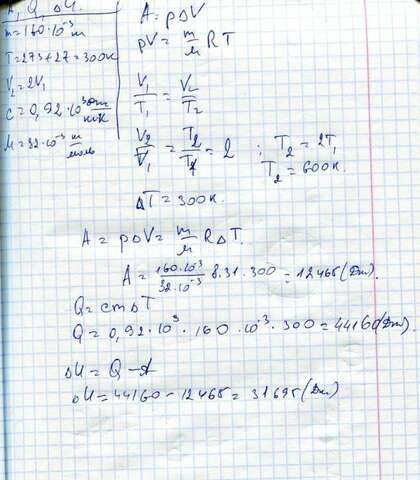 A, Q, ΔU.
m=160·10⁻³ m
T=273+27=300K
V₂=2V₁
c=0,92·10³ Дж/кгК
M=32·10⁻³ кг/моль
A=pΔV
pV=m/M RT
V₁/T₁=V₂/T₂
V₂/V₁=T₂/T₁=2 ; T₂=2T₁
T₂=600K.
ΔT=300K.
A=pΔV=m/M RΔT.
A=160·10⁻³/32·10⁻³ 8.31·300=12465(Дж).
Q=cmΔT
Q=0,92·10³·160·10⁻³·300=44160(Дж).
ΔU=Q-A
ΔU=44160-12465=31695(Дж)